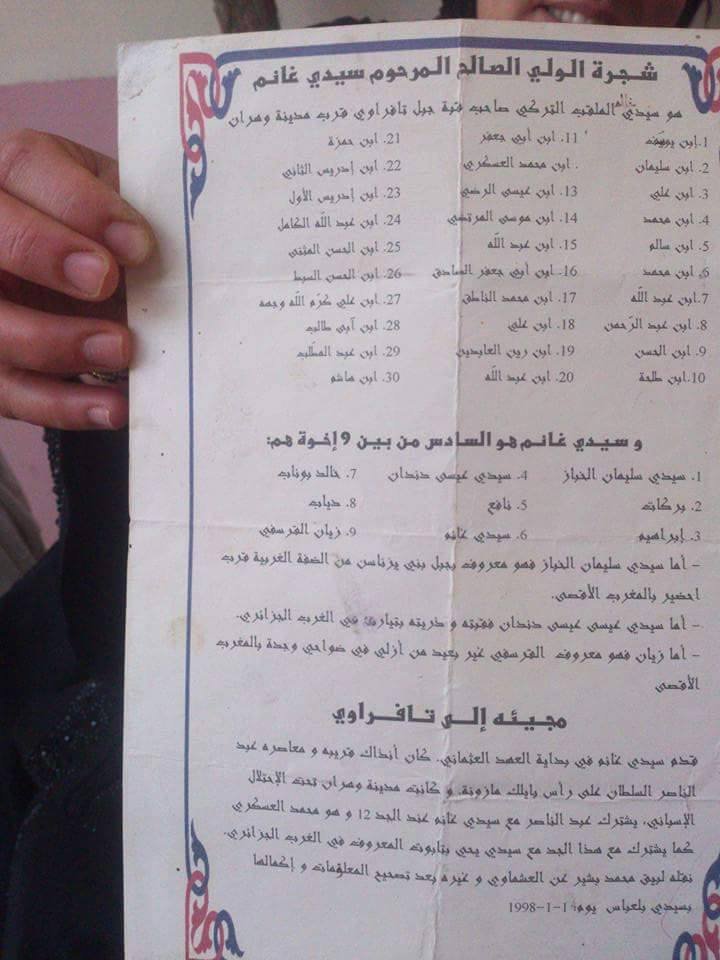 شجرة الولي الصالح المرحوم سيدي غانم
هو سيدي غانم الملقب التركي صاحب قبة جبل تافراوي قرب مدينة وهران
1. ابن يوسف 11. ابن أبي جعفر 21. ابن حمزة
2. ابن سليمان . ابن محمد العسكري 22. ابن إدريس الثاني
3. ابن علي 13. ابن عيسى الرضي 23. ابن إدريس الأول
4. ابن محمد 14. ابن موسى المرتضي 24. ابن عبد الله الكامل
5. ابن سالم 15. ابن عبد الله 25. ابن الحسن المثنى
6. ابن محمد 16. ابن أبي جعفر الصادق 26. ابن الحسن السبط
7. ابن عبد الله 17. ابن محمد الناطق 27. ابن علي كرّم الله وجهه
8. ابن عبد الرّحمن 18. ابن علي 28. ابن أبي طالب
9. ابن الحسن 19. ابن زين العابدين 29. ابن عبد المطّلب
10. ابن طلحة 20. ابن عبد الله 30. ابن هاشم
و سيدي غانم هو السادس من بين 9 إخوة هم:
1. سيدي سليمان الخباز 4. سيدي عيسى دندان 7. خالد بوناب
2. بركات 5. نافع 8. دياب
3. إبراهيم 6. سيدي غانم 9. زيان القرسفي
- أما سيدي سليمان الخباز فهو معروف بجبل بني يزناسن من الضفة الغربية قرب
احضير بالمغرب الأقصى.
- أما سيدي عيسى عيسى دندان فقبته و ذريته بتيارت في الغرب الجزائري.
- أما زيان فهو معروف القرسفي غير بعيد من أزلي في ضواحي وجدة بالمغرب
الأقصى
مجيئه إلى تافراوي
قدم سيدي غانم في بداية العهد العثماني. كان أنذاك قريبه و معاصره عبد
الناصر السلطان على رأس بايلك مازونة، و كانت مدينة وهران تحت الإحتلال
الإسباني، يشترك عبد الناصر مع سيدي غانم عند الجد 12 و هو محمد العسكري
كما يشترك مع هذا الجد مع سيدي يحي بتابوت المعروف في الغرب الجزائري.
نقله لبيق محمد بشير عن العشماوي و غيره بعد تصحيح المعلومات و إكمالها
بسيدي بلعباس يوم 1-1-1998